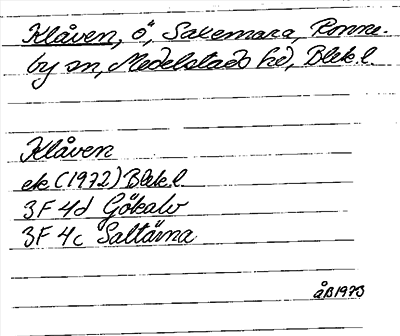 Klåven, ö, Saxemara, Ronne-
by sn, Medelstads hd, Blek.l.
Klåven
ek (1972) Blek.l
3F 4d Gökalv
3F 4c Saltärna
åB1973